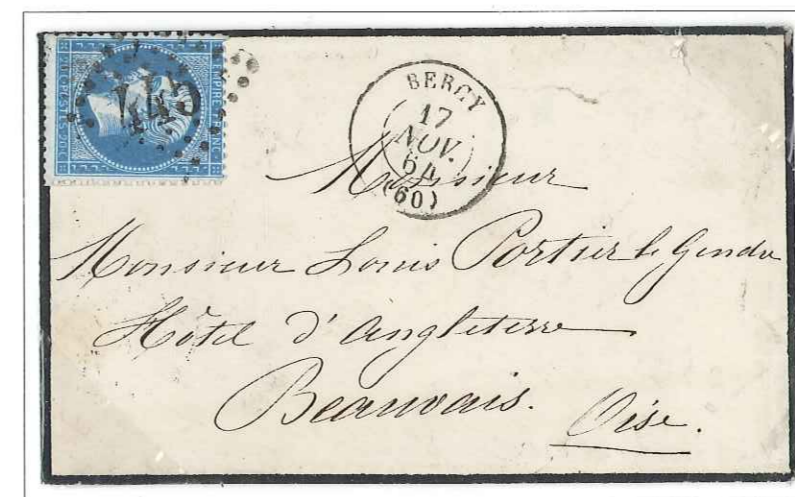 EMPIRE FRANC
20c POSTES 20c
445
BERCY
17
NOV.
64
(60)
Monsieur
Monsieur Louis Portier le Gendre
Hôtel d'Angleterre
Beauvais. Oise.